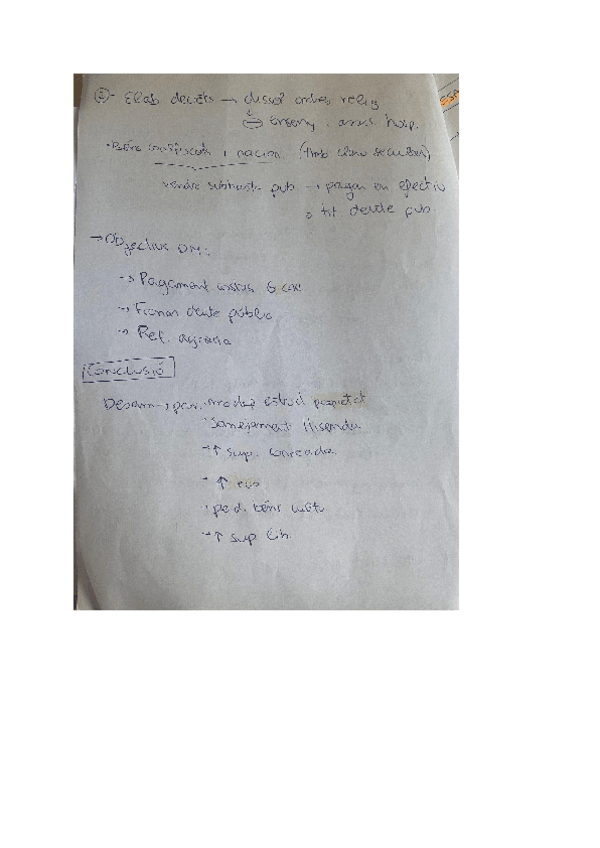 ②- Elab decrets → dissol ordres relig
⊖ enseny. assis. hosp.
·Béns confiscats i nacion. (tmb clero secular)
vendre subhasta pub → pagar en efectiu
o tít deute pub.
→ Objectius DM:
→ Pagament costos G. car.
→ Financ deute públic
→ Ref. agrària
Conclusió
Desam → estruct propietat
· Sanejament Hisenda
→ ↑ sup. conreada
→ ↑
· pèd. béns cult
→ ↑ sup
ESP